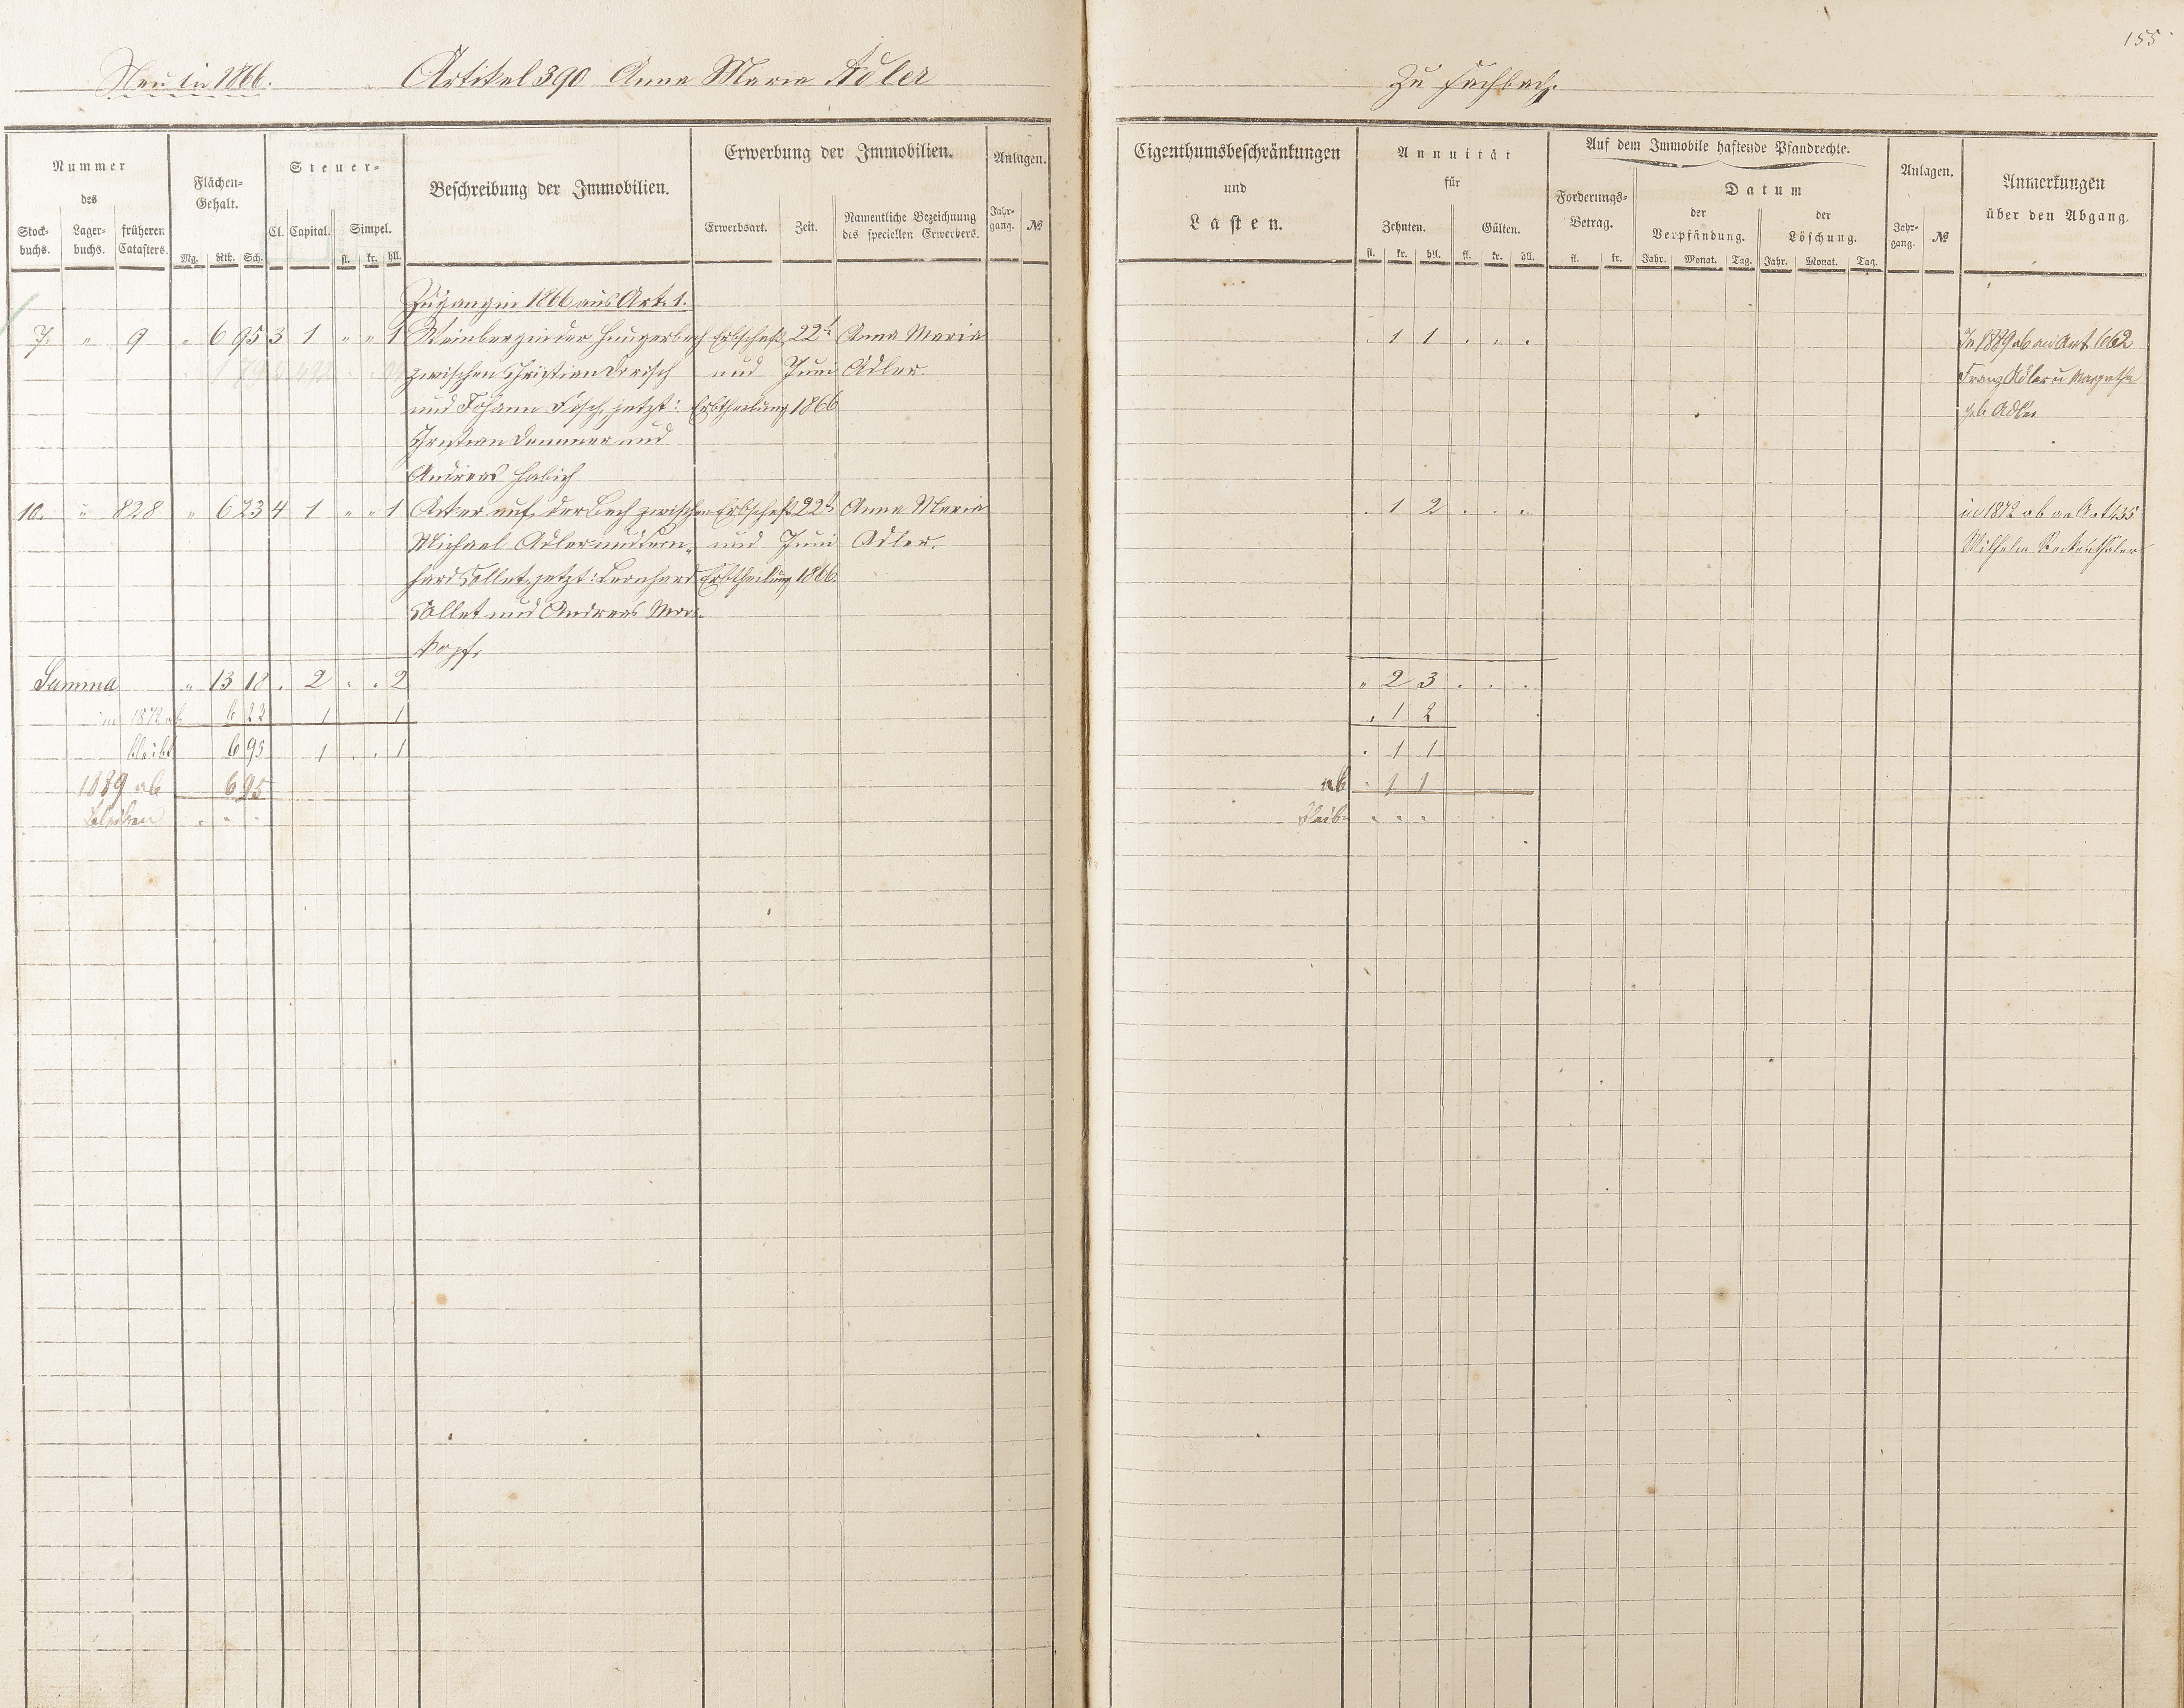 155
Neu in 1866. Artikel 390 Anna Maria Adler zu Fachbach.
Nummer
des
Stock-
buchs.
Lager-
buchs.
früheren
Catasters.
Flächen-
Gehalt.
Mg. Rth. Sch.
Steuer-
Cl. Capital. Simpel.
fl. kr. hll.
Beschreibung der Immobilien.
Erwerbung der Immobilien.
Erwerbsart. Zeit.
Namentliche Bezeichnung
des speciellen Erwerbers.
Anlagen.
Jahr-
gang. №
Eigenthumsbeschränkungen
und
Lasten.
Annuität
für
Zehnten. Gülten.
fl. kr. hll. fl. kr. hll.
Auf dem Immobile haftende Pfandrechte.
Forderungs-
Betrag.
fl. kr.
Datum
der
Verpfändung.
der
Löschung.
Jahr. Monat. Tag. Jahr. Monat. Tag.
Anlagen.
Jahr-
gang. №
Anmerkungen
über den Abgang.
Zugang in 1866 aus Art. 1.
7. " 9 " 6 95 3 1 " " 1 Weinberg in der Hungerbach Erbschaft 22t Anna Maria . 1 1 . . . In 1889 ab an Art 662
zwischen Christian Dorisch und Juni Adler. Franz Adler u Margretha
und Johann Fäsch, jetzt: Erbtheilung 1866 geb Adler
Christian Demmer und
Andreas Habich
10. " 828 " 6 23 4 1 " " 1 Acker auf der Bach zwischen Erbschaft 22t Anna Maria . 1 2 . . . in 1872 ab an Art 435
Michael Adler und Bern- und Juni Adler. Wilhelm
hard Collet, jetzt: Bernhard Erbtheilung 1866.
Collet und Andreas
kopf.
Summa " 13 18 . 2 . . 2 " 2 3 . . .
in 1872 ab 6 23 1 1 . 1 2
bleibt 6 95 1 . . 1 . 1 1
1889 ab 6 95 ab . 1 1
bleiben . " . bleib " " "